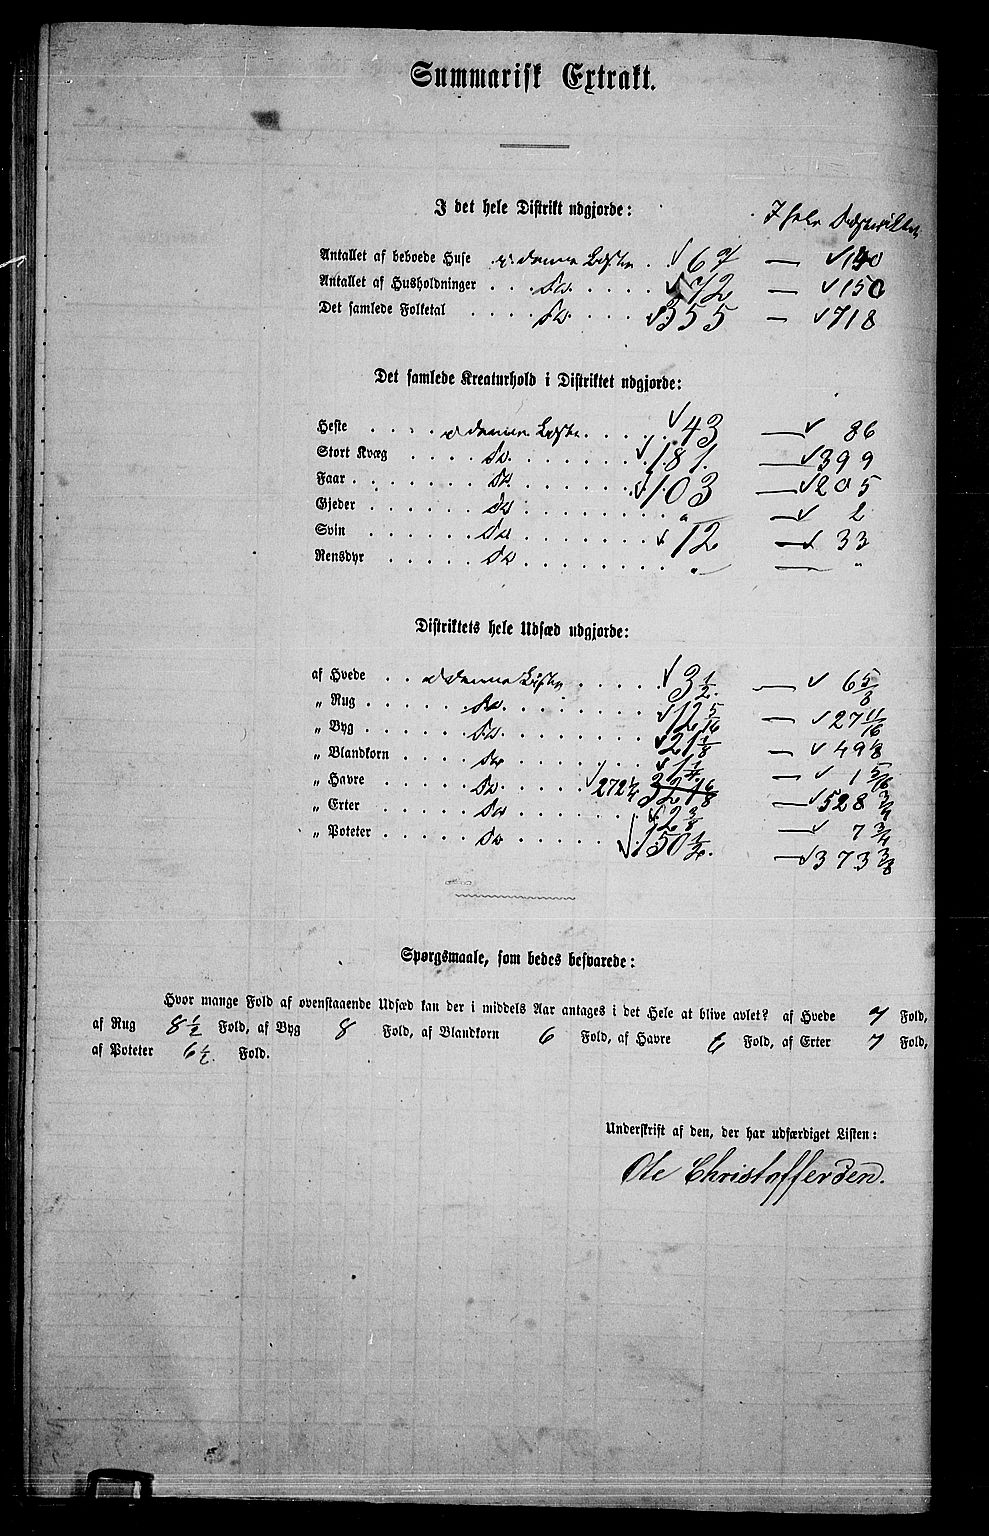 Summarisk Extrakt.
I det hele Distrikt udgjorde: I hele Distriktet
Antallet af beboede Huse . . i denne Liste . . 67 — 140
Antallet af Husholdninger . . . Do. . . . . . 72 — 150
Det samlede Folketal . . . . Do. . . . . 355 — 718
Det samlede Kreaturhold i Distriktet udgjorde:
Heste . . . . i denne Liste . . . . . 43 — 86
Stort Kvæg . . . . Do. . . . . . . . 181. — 399
Faar . . . . . . Do. . . . . . . . 103 — 205
Gjeder . . . . . Do. . . . . . . . " — 2
Svin . . . . . Do. . . . . . . . 12 — 33
Rensdyr . . . . . Do. . . . . . . . " — "
Distriktets hele Udsæd udgjorde:
af Hvede . . i denne Liste . . . . . 3 1/2. — 6 5/8
„ Rug . . . . . Do. . . . . . . . 12 5/16 — 27 11/16
„ Byg . . . . . Do. . . . . . . . 21 1/8 — 49 1/8
„ Blandkorn . . . . Do. . . . . . . 1 1/4. — 1 5/16
„ Havre . . . . Do. . . . . 272 1/4 321 6/8 — 528 3/4
„ Erter . . . . Do. . . . . . . 2 3/8 — 7 3/4
„ Poteter . . . . . Do. . . . . . 150 1/2. — 373 3/8
Spørgsmaale, som bedes besvarede:
Hvor mange Fold af ovenstaaende Udsæd kan der i middels Aar antages i det Hele at blive avlet? af Hvede 7 Fold,
af Rug 8 1/2 Fold, af Byg 8 Fold, af Blandkorn 6 Fold, af Havre 6 Fold, af Erter 7 Fold,
af Poteter 6 1/2 Fold.
Underskrift af den, der har udfærdiget Listen:
Ole Christoffersen.